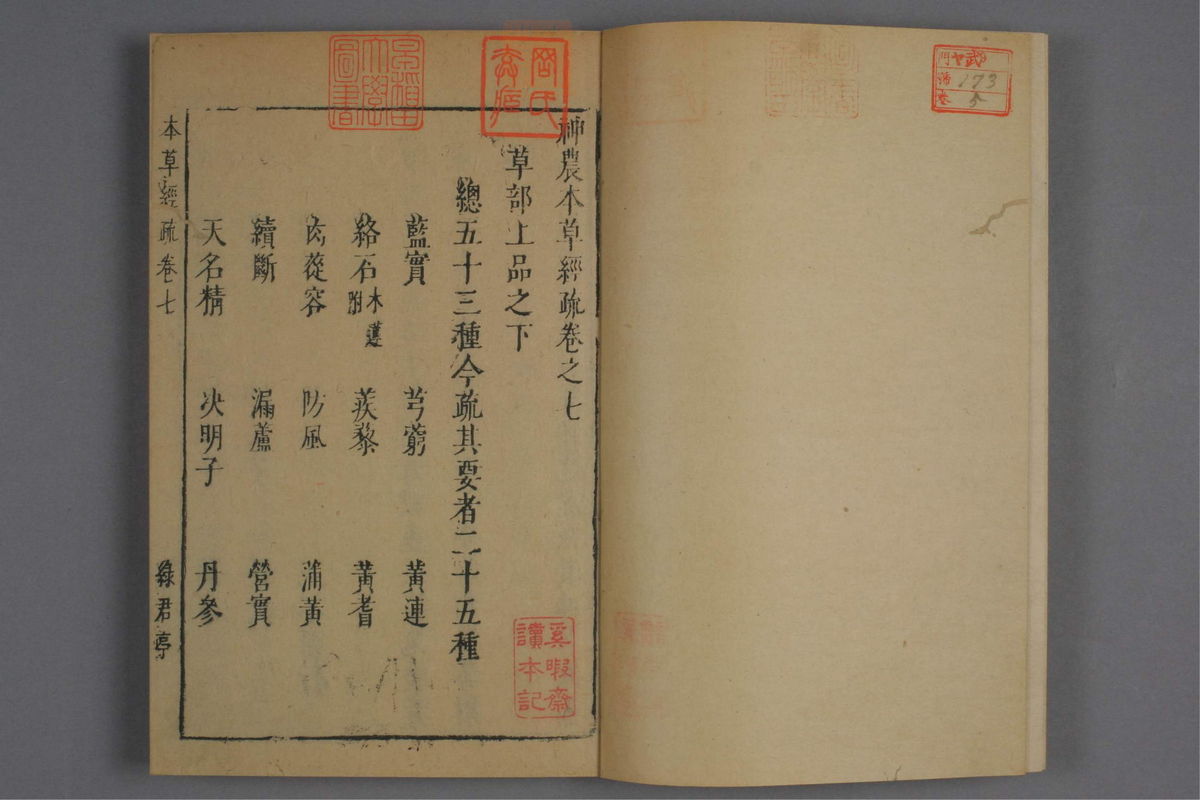 神農本草經疏卷之七
草部上品之下
總五十三種今疏其要者二十五種
藍實 芎藭 黃連
絡石木蓮附 蒺藜 黃耆
肉蓯容 防風 蒲黃
續斷 漏蘆 營實
天名精 決明子 丹參
本草經疏卷七 綠君亭
奚暇齋讀本記
173
5